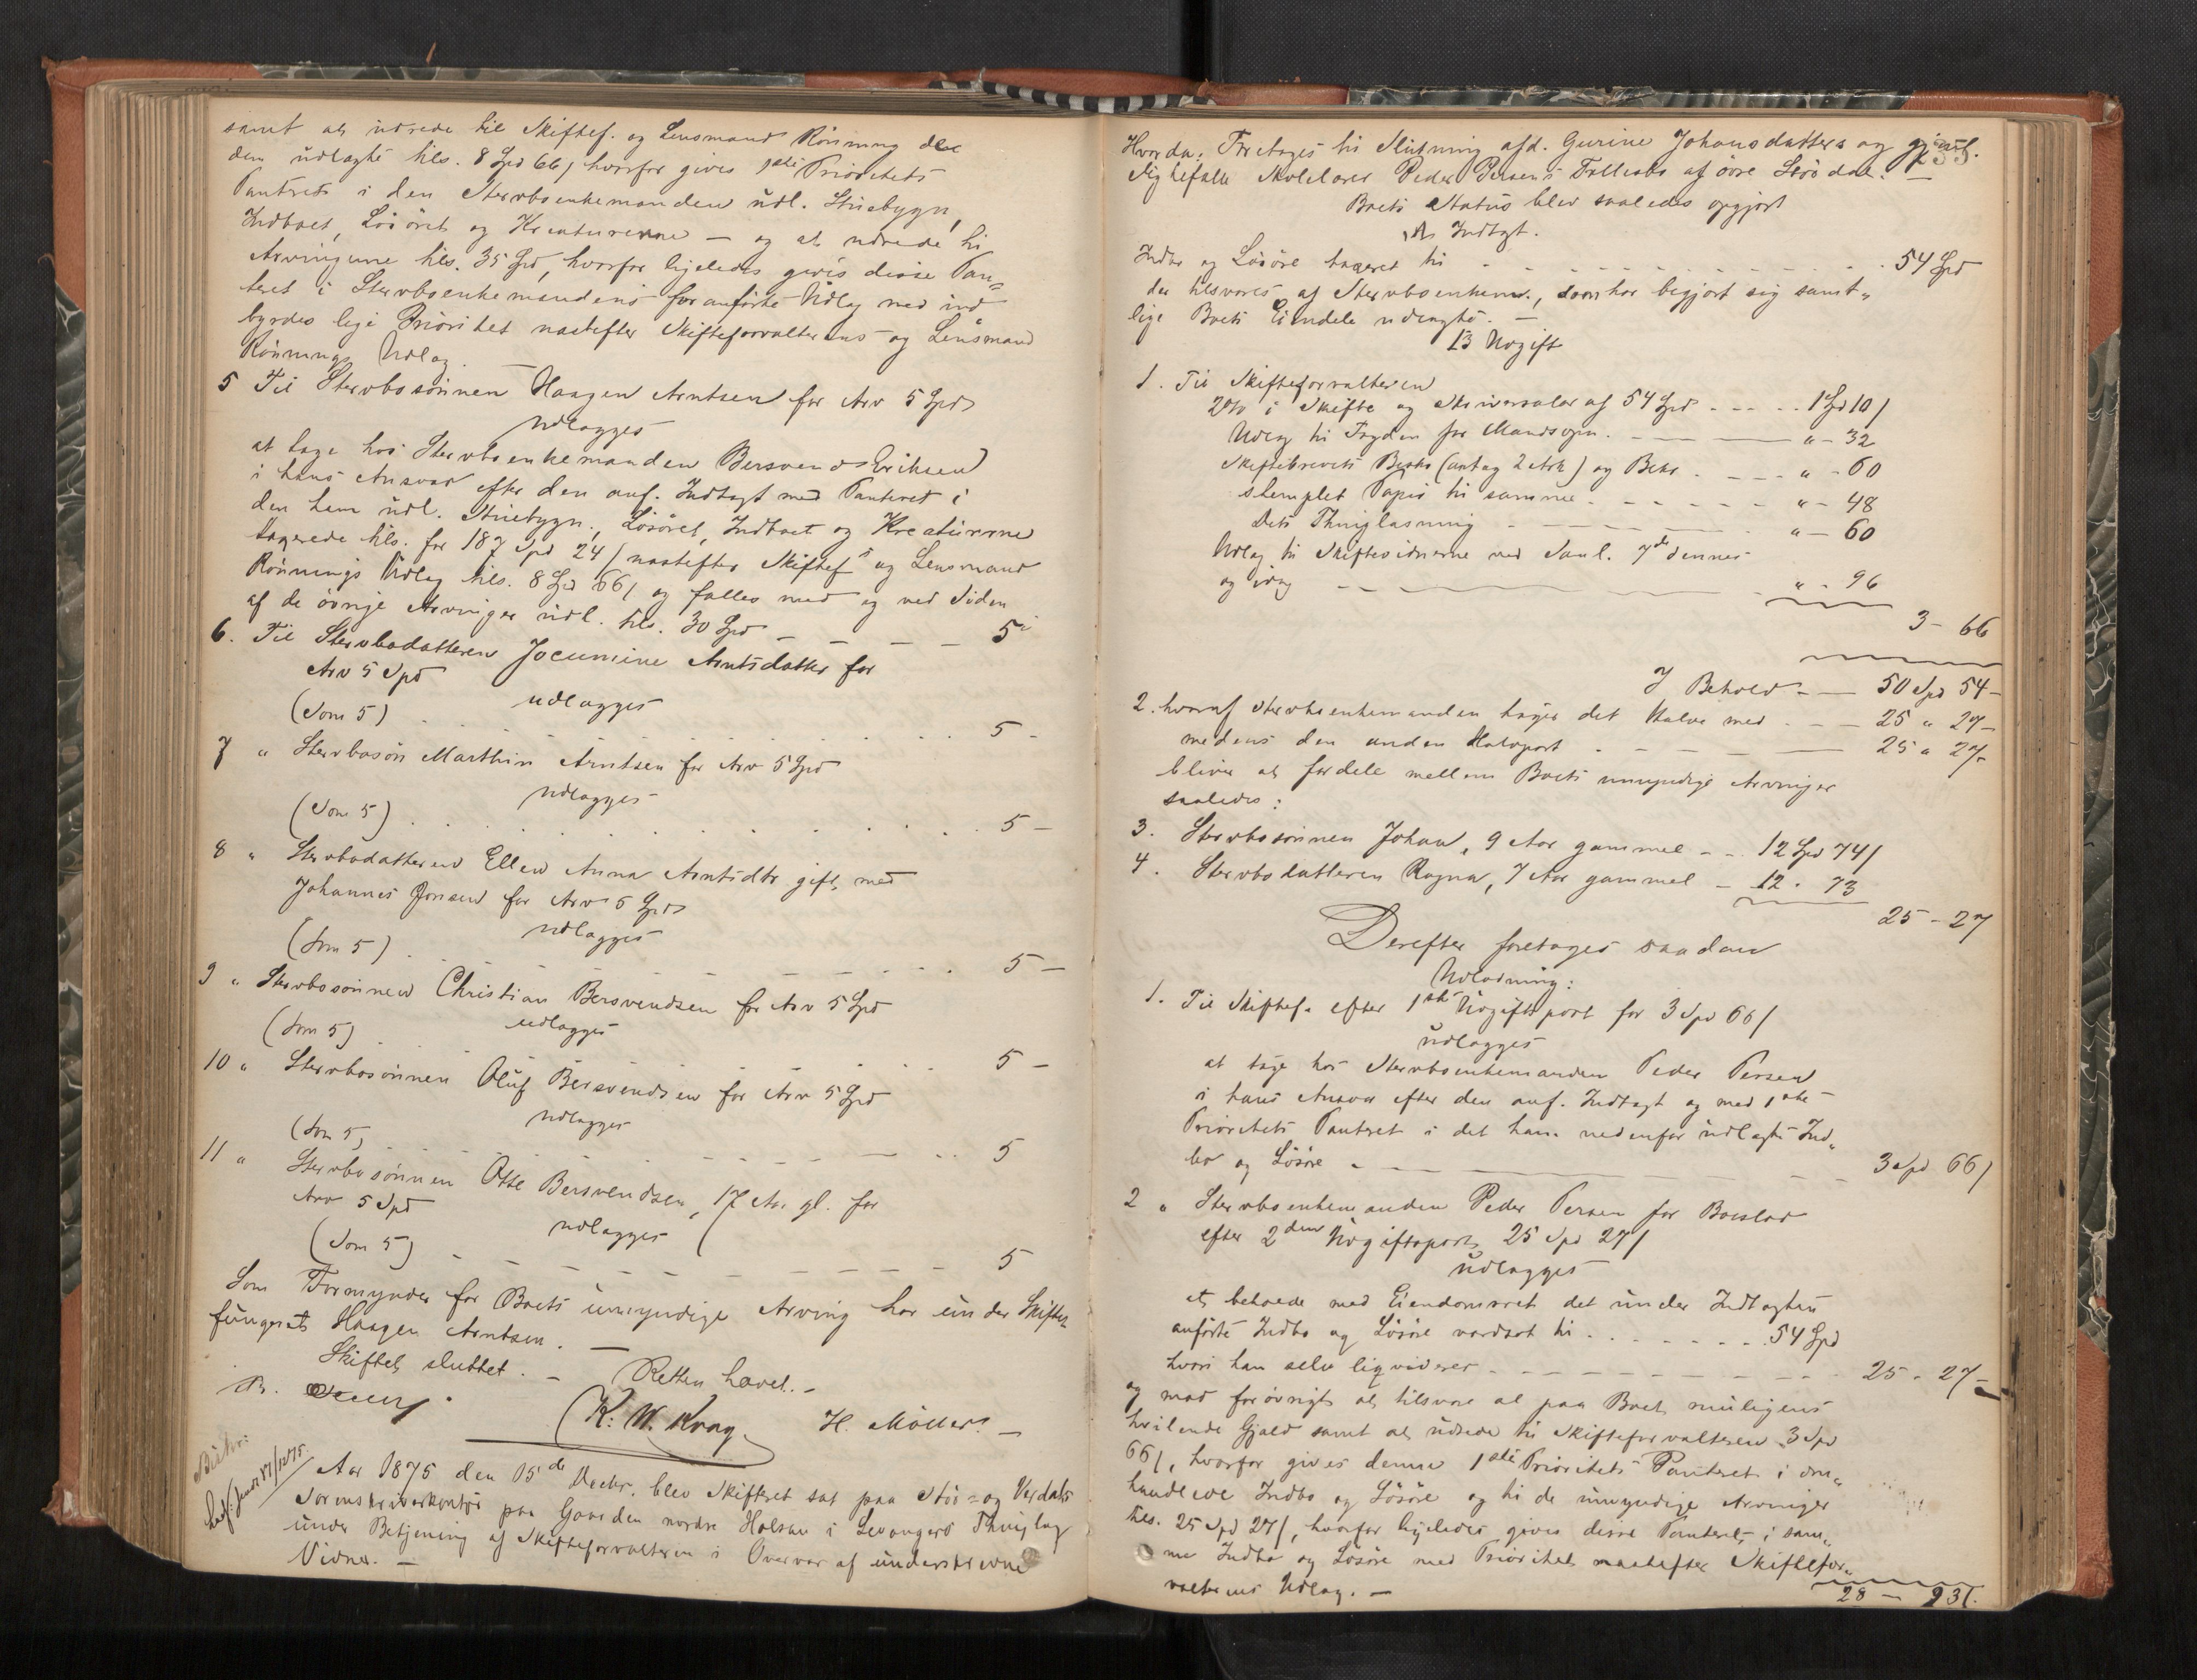 samt at udrede til Skiftef. og Lensmand Rönning det
dem udlagte tils. 8 Spd 66 / hvorfor gives 1ste Prioritets
Panteret i den Stervboenkemanden udl. Stuebygn,
Indboet, Lösöret og Kreaturerne — og at udrede til
Arvingerne tils. 35 Spd, hvorfor ligeledes gives disse Pan=
teret i Stervboenkemandens foranförte Udlæg med ind
byrdes lige Prioritet næstefter Skifteforvalterens og Lensmand
Rönnings Udlæg. —
5 Til Stervbosönnen Haagen Arntsen for Arv 5 Spd
udlægges
at tage hos Stervboenkemanden Bersvend Eriksen
i hans Ansvar efter den anf. Indtægt med Panteret i
den ham udl. Stuebygn., Lösöret, Indboet og Kreaturerne
taxerede tils. for 187 Spd 24 / næstefter Skiftef. og Lensmand
Rönnings Udlæg tils. 8 Spd 66 / og fælles med og ved Siden
af de övrige Arvinger udl. tils. 30 Spd — — — — 5
6. Til Stervbodatteren Jocumine Arntsdatter for
Arv 5 Spd
udlægges
(Som 5) . . . . . . 5 -
7 " Stervbosön Marthin Arntsen for Arv 5 Spd
udlægges
(Som 5) . . . . . . 5 —
8 " Stervbodatteren Ellen Anna Arntsdtr gift med
Johannes Jonsen for Arv 5 Spd
udlægges
(Som 5) . . . . . . 5 —
9 " Stervbosönnen Christian Bersvendsen for Arv 5 Spd
udlægges
(Som 5) . . . . . . 5 —
10 " Stervbosönnen Oluf Bersvendsen for Arv 5 Spd
udlægges
(Som 5) — — — 5
11 " Stervbosönnen Otte Bersvendsen, 17 Aar gl. for
Arv 5 Spd
udlægges
(Som 5) — — — 5
Som Formynder for Boets umyndige Arving har under Skiftet
fungeret Haagen Arntsen. —
Skiftet sluttet. — Retten hævet. —
K. W. Krag. H. Möller. —
Aar 1875 den 15de Decbr. blev Skifteret sat paa Stör- og Værdals
Sorenskriverkontor paa Gaarden nordre Halsan i Levangers Thinglag
under Betjening af Skifteforvalteren i Overvær af underskrevne
Vidner. —
Hvorda: Foretages til Slutning afd. Gurine Johansdatters og gjenl.
Ægtefælle Skolelærer Peder Persens Fællesbo af övre Stördal. —
Boets Status blev saaledes opgjort
A Indtgt.
Indbo og Lösöre taxeret til . . . . . . 54 Spd
der tilsvares af Stervboenkem., som har begjært sig samt„
lige Boets Eiendele udlagte. —
B Udgift
1. Til Skifteforvalteren
2% i Skifte og Skriversalær af 54 Spd - - - - 1 Spd 10 /
Udlæg til Fogden for Mandsopn. — — " - 32
Skiftebrevets Beskr (antag 2 Ark) og Bekr. - - - " - 60
stemplet Papir til samme - - - - - " - 48
Dets Thinglæsning - - - - - " - 60
Udlæg til Skiftevidnerne ved Saml. 7de dennes
og idag — — — " - 96
3 - 66
I Behold - — 50 Spd 54 -
2. hvoraf Stervboenkemanden tager det Halve med - - - 25 " 27 -
medens den anden Halvpart - — — 25 " 27 -
bliver at fordele mellem Boets umyndige Arvinger
saaledes:
3. Stervbosönnen Johan, 9 Aar gammel - - 12 Spd 74 /
4. Stervbodatteren Ragna, 7 Aar gammel - 12 - 73
25 - 27
Derefter foretages saadan
Udlodning:
1. Til Skiftef. efter 1ste Udgiftspost for 3 Spd 66 /
udlægges
at tage hos Stervboenkemanden Peder Persen
i hans Ansvar efter den anf. Indtægt og med 1ste
Prioritets Panteret i det ham nedenfor udlagte Ind„
bo og Lösöre - — — — 3 Spd 66 /
2 " Stervboenkemanden Peder Persen for Boeslod
efter 2den Udgiftspost, 25 Spd 27 /
udlægges
at beholde med Eiendomsret det under Indtægten
anförte Indbo og Lösöre værdsat til . . . . . . 54 Spd
hvori han selv liqviderer - - - - - - 25 - 27 —
og mod forövrigt at tilsvare al paa Boet muligens
hvilende Gjæld samt at udrede til Skifteforvalteren 3 Spd
66 /, hvorfor gives denne 1ste Prioritets Panteret i om„
handlede Indbo og Lösöre og til de umyndige Arvinger
tils. 25 Spd 27 /, hvorfor ligeledes gives disse Panteret i sam„
me Indbo og Lösöre med Prioritet næstefter Skiftefor„
valterens Udlæg. —
28 — 93 /.